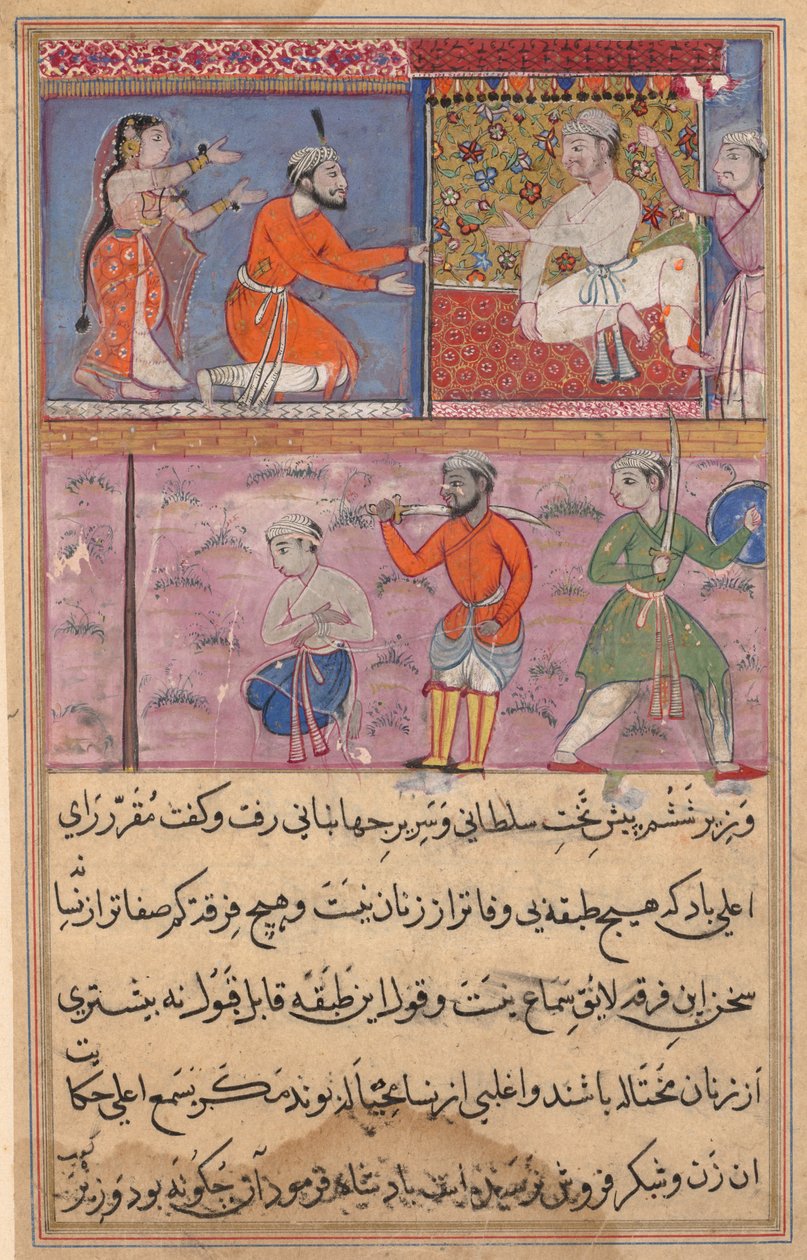 وَزِیرِ شَشُم پیشِ تَختِ سلطانی وَسَرِیرِ جهانبانی رفت و کفت مُقَرّرِ رَایِ
اعلی باد که هیچ طبقه بی وفاتر از زنان نیست وهیچ فِرقه کم صفاتر از نسا نه
سخن این فرقه لایقِ سَماع نیست وقول این طَبَقَه قابل قَبُول نه بیشتری
از زنان مُحتاله باشند واغلبی از نسا مُحتیاله بوند مکر بسَمع اعلی حکایت
ان زَن وشکر فروش نرسیده است بادشاه فرمود آن چَکونَه بود وَزیر کفت